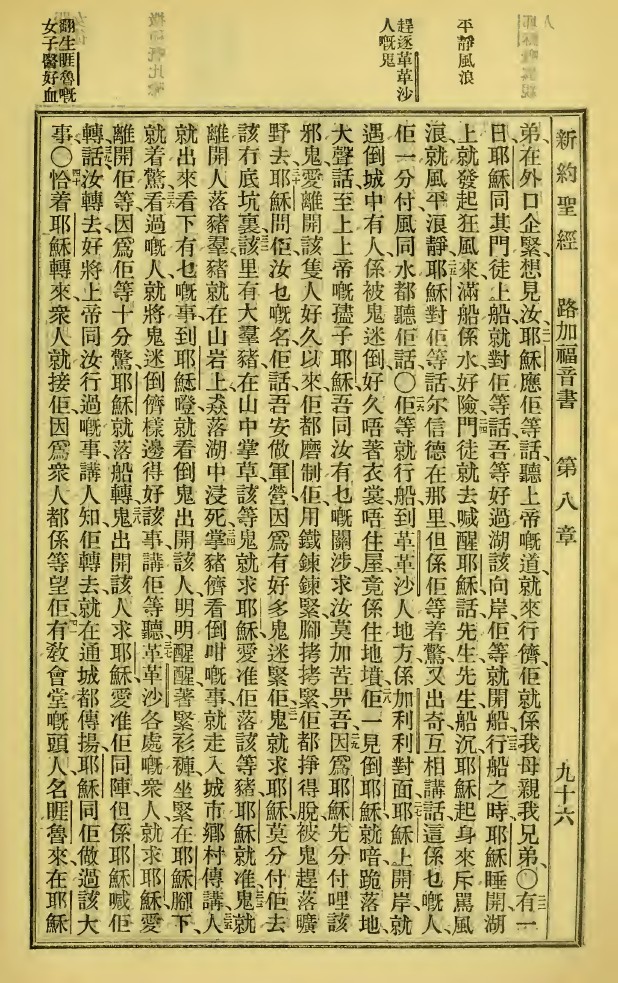 新約聖經 路加福音書 第八章 九十六
平靜風浪
趕逐革革沙
人嘅鬼
翻生睚魯嘅
女子醫好血
弟、在外口企緊、想見汝、耶穌應佢等話、聽上帝嘅道、就來行儕、佢就係我母親我兄弟、〇有一
日、耶穌同其門徒上船、就對佢等話、吾等好過湖該向岸、佢等就開船、行船之時、耶穌睡開、湖
上就發起狂風來、滿船係水、好險、門徒就去喊醒耶穌話、先生先生、船沉、耶穌起身來、斥罵風
浪、就風平浪靜、耶穌對佢等話、尔信德在那里、但係佢等着驚、又出奇、互相講話、這係乜嘅人、
佢一分付風同水、都聽佢話、〇佢等就行船到革革沙人地方、係加利利對面、耶穌上開岸、就
遇倒城中有人、係被鬼迷倒好久、唔著衣裳、唔住屋、竟係住地墳、佢一見倒耶穌、就喑跪落地、
大聲話、至上上帝嘅孻子耶穌、吾同汝有乜嘅關涉、求汝莫加苦畀吾、因爲耶穌先分付哩該
邪鬼、愛離開該隻人、好久以來、佢都磨制佢、用鐵鍊鍊緊、腳拷拷緊、佢都掙得脫、被鬼趕落曠
野去、耶穌問佢、汝乜嘅名、佢話、吾安做軍營、因爲有好多鬼迷緊佢、鬼就求耶穌、莫分付佢去
該冇底坑裏、該里有大羣豬、在山中掌草、該等鬼就求耶穌、愛准佢落該等豬、耶穌就准、鬼就
離開人落豬、羣豬就在山岩上猋落湖中浸死、掌豬儕看倒咁嘅事、就走入城市鄉村傳講、人
就出來、看下有乜嘅事、到耶穌嶝、就看倒鬼出開該人、明明醒醒、著緊衫褲、坐緊在耶穌腳下、
就着驚、看過嘅人、就將鬼迷倒儕樣邊得好該事、講佢等聽、革革沙各處嘅衆人、就求耶穌愛
離開佢等、因爲佢等十分驚、耶穌就落船轉、鬼出開該人求耶穌愛准佢同陣、但係耶穌喊佢
轉、話、汝轉去、好將上帝同汝行過嘅事、講人知、佢轉去、就在通城都傳揚耶穌同佢做過該大
事、〇恰着耶穌轉來、衆人就接佢、因爲衆人都係等望佢、有敎會堂嘅頭人名睚魯、來在耶穌